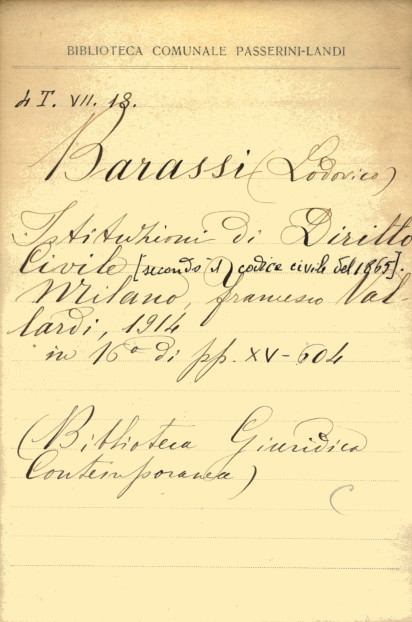 BIBLIOTECA COMUNALE PASSERINI-LANDI
4 T. VII. 13.
Barassi (Lodovico)
Istituzioni di Diritto
Civile [secondo il codice civile del 1865].
Milano, Francesco Val-
lardi, 1914
in 16º di pp. XV-604
(Biblioteca Giuridica
Contemporanea)
C